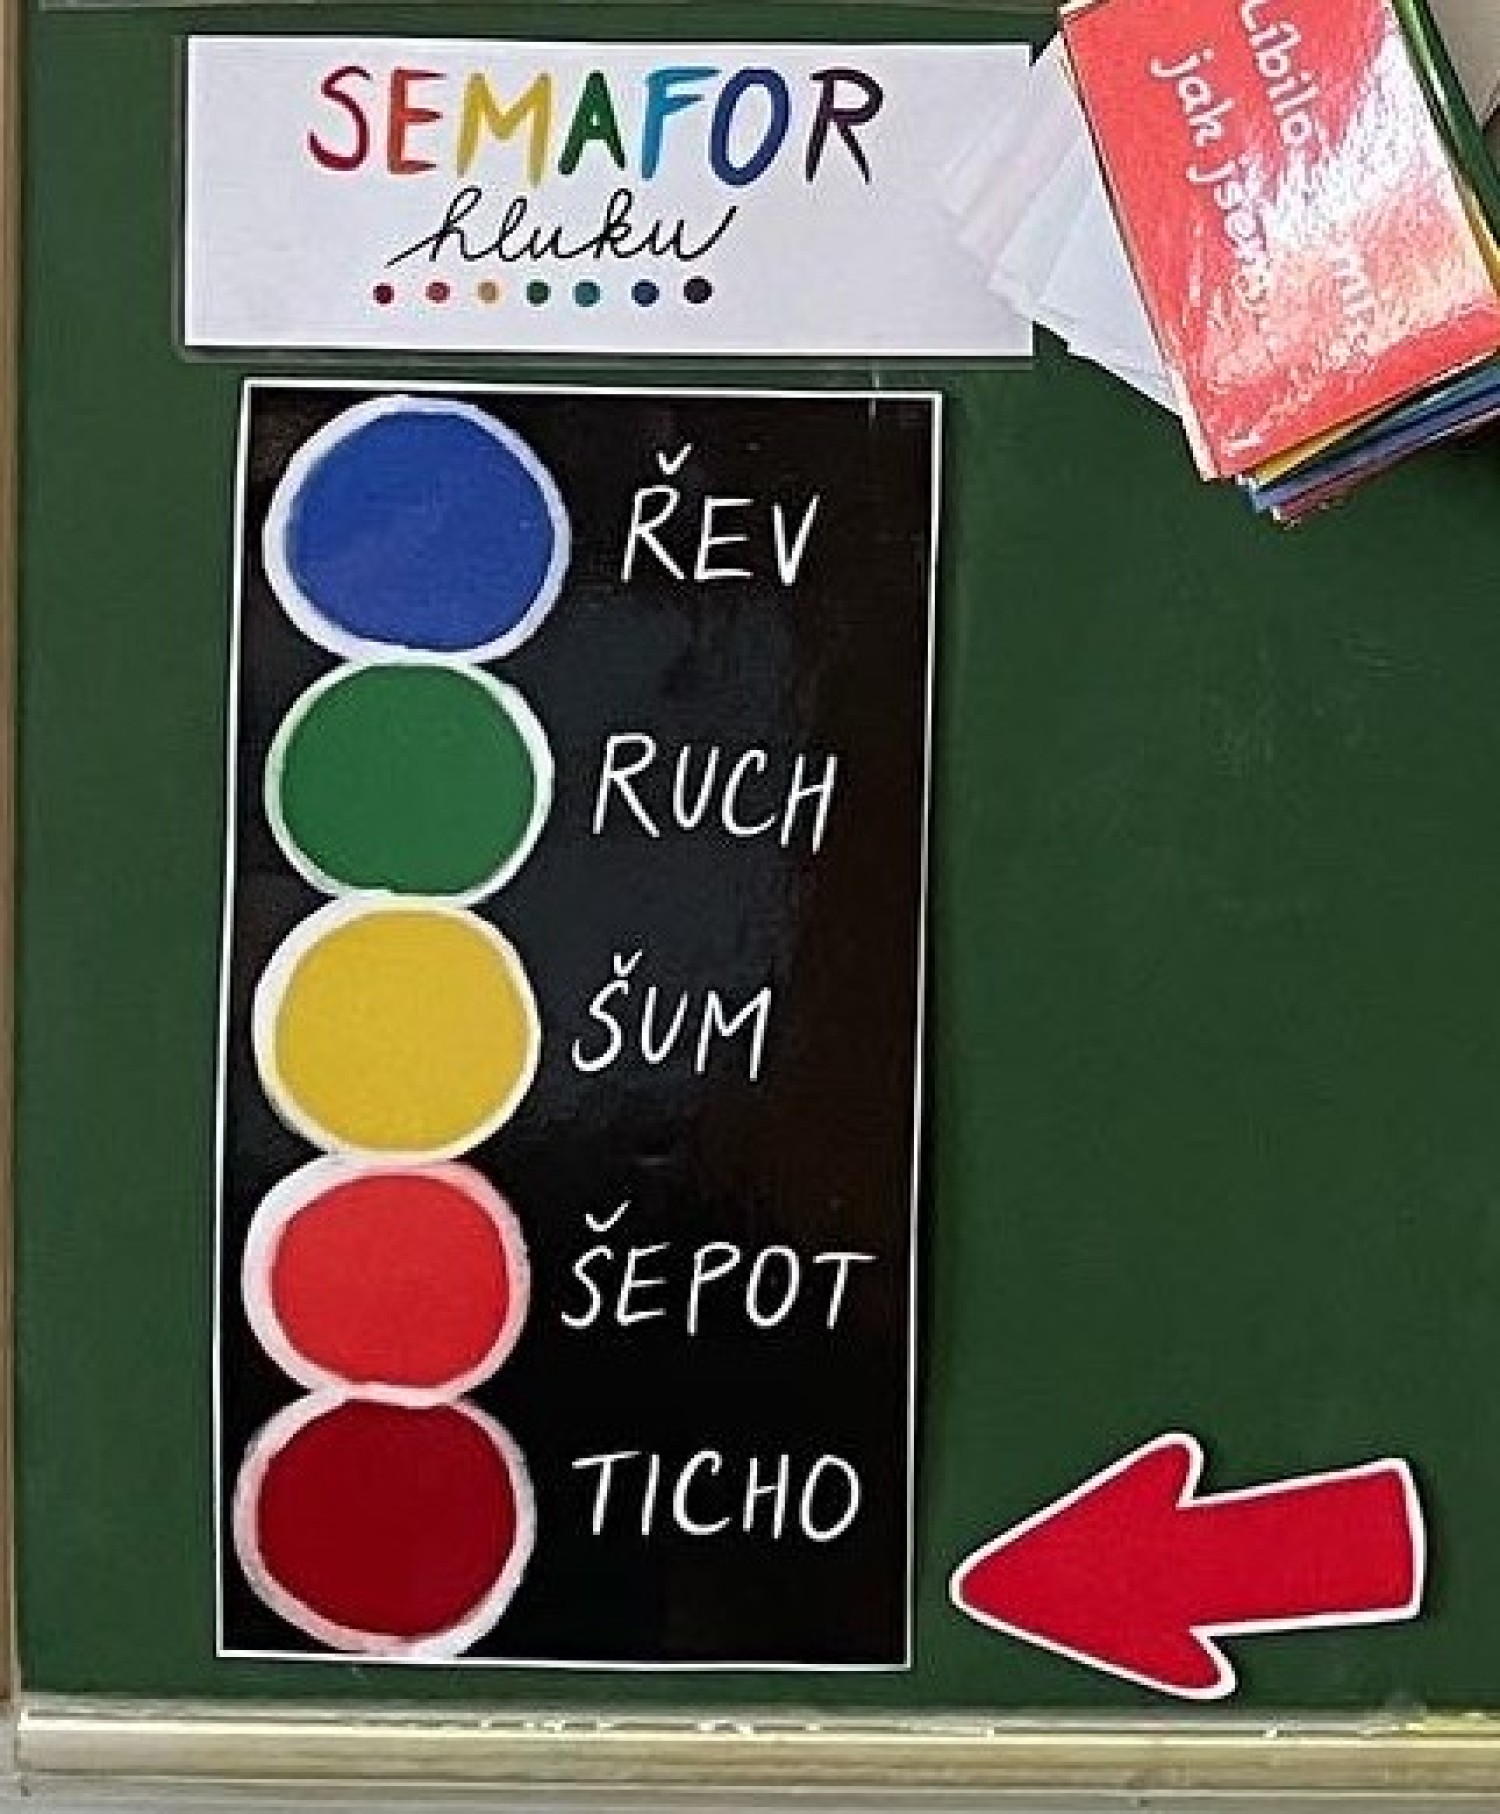 SEMAFOR
hluku
Líbilo mi
jak jsem
ŘEV
RUCH
ŠUM
ŠEPOT
TICHO